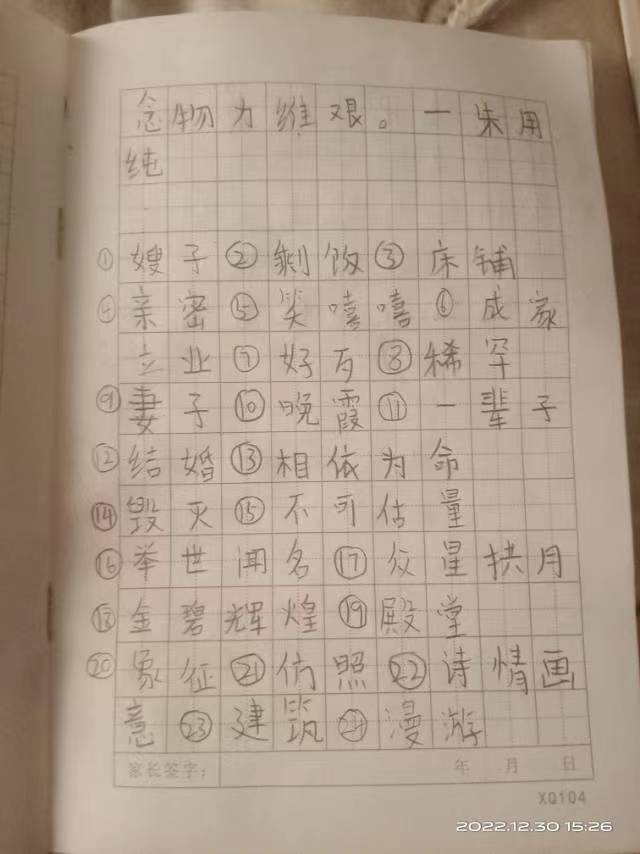 念物力维艰。一朱用
纯
①嫂子②剩饭③床铺
④亲密⑤笑嘻嘻⑥成家
立业⑦好歹⑧稀罕
⑨妻子⑩晚霞⑪一辈子
⑫结婚⑬相依为命
⑭毁灭⑮不可估量
⑯举世闻名⑰众星拱月
⑱金碧辉煌⑲殿堂
⑳象征㉑仿照㉒诗情画
意㉓建筑㉔漫游
家长签字： 年 月 日
XQ104
2022.12.30 15:26